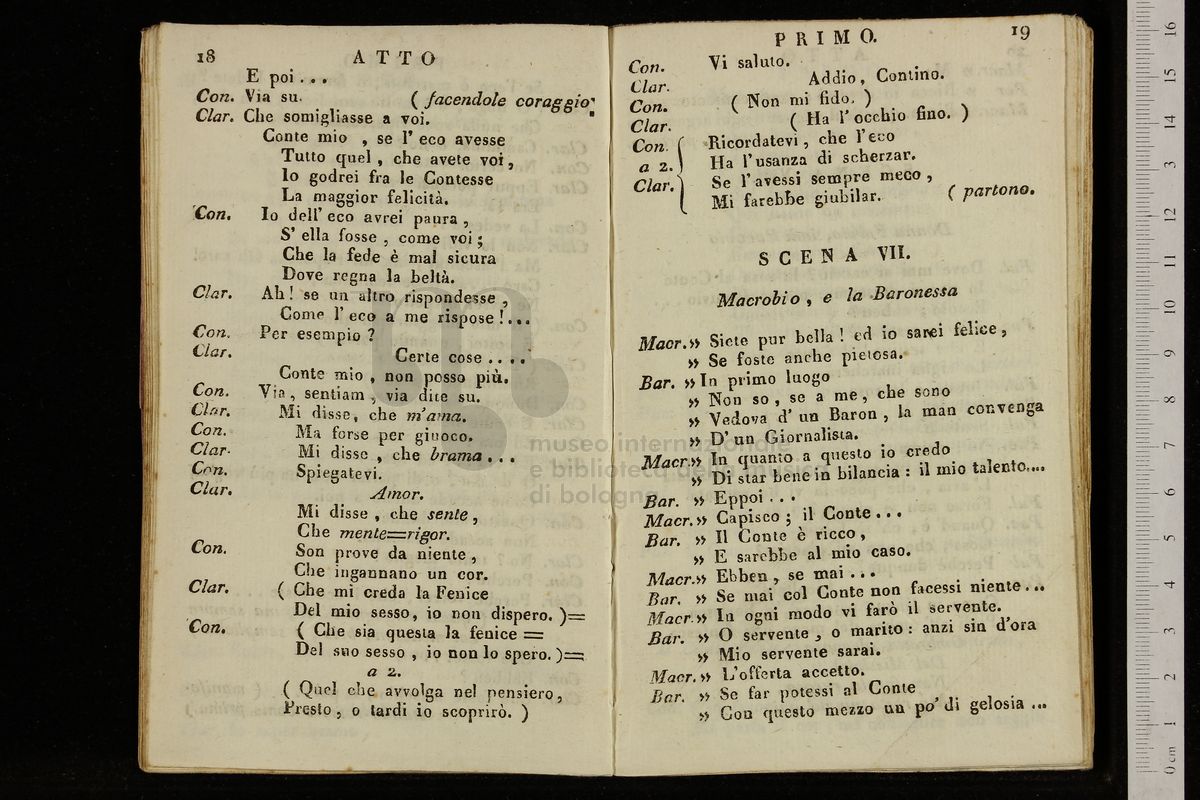 18 ATTO
E poi . . .
Con. Via su. ( facendole coraggio
Clar. Che somigliasse a voi.
Conte mio , se l' eco avesse
Tutto quel , che avete voi ,
Io godrei fra le Contesse
La maggior felicità.
Con. Io dell' eco avrei paura ,
S' ella fosse , come voi ;
Che la fede è mal sicura
Dove regna la beltà.
Clar. Ah! se un altro rispondesse ,
Come l' eco a me rispose ! . . .
Con. Per esempio ?
Clar. Certe cose . . . .
Conte mio , non posso più.
Con. Via , sentiam , via dite su.
Clar. Mi disse, che m'ama.
Con. Ma forse per giuoco.
Clar. Mi disse , che brama . . .
Con. Spiegatevi.
Clar. Amor.
Mi disse , che sente ,
Che mente=rigor.
Con. Son prove da niente ,
Che ingannano un cor.
Clar. ( Che mi creda la Fenice
Del mio sesso, io non dispero. )=
Con. ( Che sia questa la fenice =
Del suo sesso , io non lo spero. )=
a 2.
( Quel che avvolga nel pensiero,
Presto , o tardi io scoprirò. )
PRIMO. 19
Con. Vi saluto.
Clar. Addio, Contino.
Con. ( Non mi fido. )
Clar. ( Ha l' occhio fino. )
Con. Ricordatevi , che l'eco
a 2. Ha l'usanza di scherzar.
Clar. Se l'avessi sempre meco ,
Mi farebbe giubilar. ( partono.
SCENA VII.
Macrobio , e la Baronessa
Macr. » Siete pur bella ! ed io sarei felice ,
» Se foste anche pietosa.
Bar. » In primo luogo
» Non so , se a me , che sono
» Vedova d' un Baron , la man convenga
» D' un Giornalista.
Macr. » In quanto a questo io credo
» Di star bene in bilancia : il mio talento....
Bar. » Eppoi . . .
Macr. » Capisco ; il Conte . . .
Bar. » Il Conte è ricco ,
» E sarebbe al mio caso.
Macr. » Ebben , se mai . . .
Bar. » Se mai col Conte non facessi niente . . .
Macr. » In ogni modo vi farò il servente.
Bar. » O servente , o marito : anzi sin d'ora
» Mio servente sarai.
Macr. » L'offerta accetto.
Bar. » Se far potessi al Conte
» Con questo mezzo un po' di gelosia ...
museo internazionale
e biblioteca della musica
di bologna
0 cm 1 2 3 4 5 6 7 8 9 10 11 12 13 14 15 16